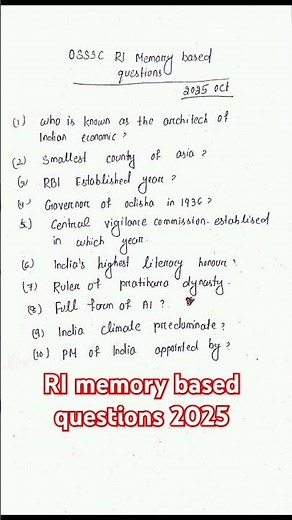 OSSSC RI Memory based
questions
2025 oct
(1) who is known as the architech of
Indian economic ?
(2) Smallest county of asia ?
(3) RBI Established year ?
(4) Governor of odisha in 1936 ?
5) Central vigilance commission establised
in which year
(6) India's highest literary honour ?
(7) Ruler of pratihara dynasty.
(8) Full form of AI ?
(9) India climate predominate ?
(10) PM of India appointed by ?
RI memory based
questions 2025